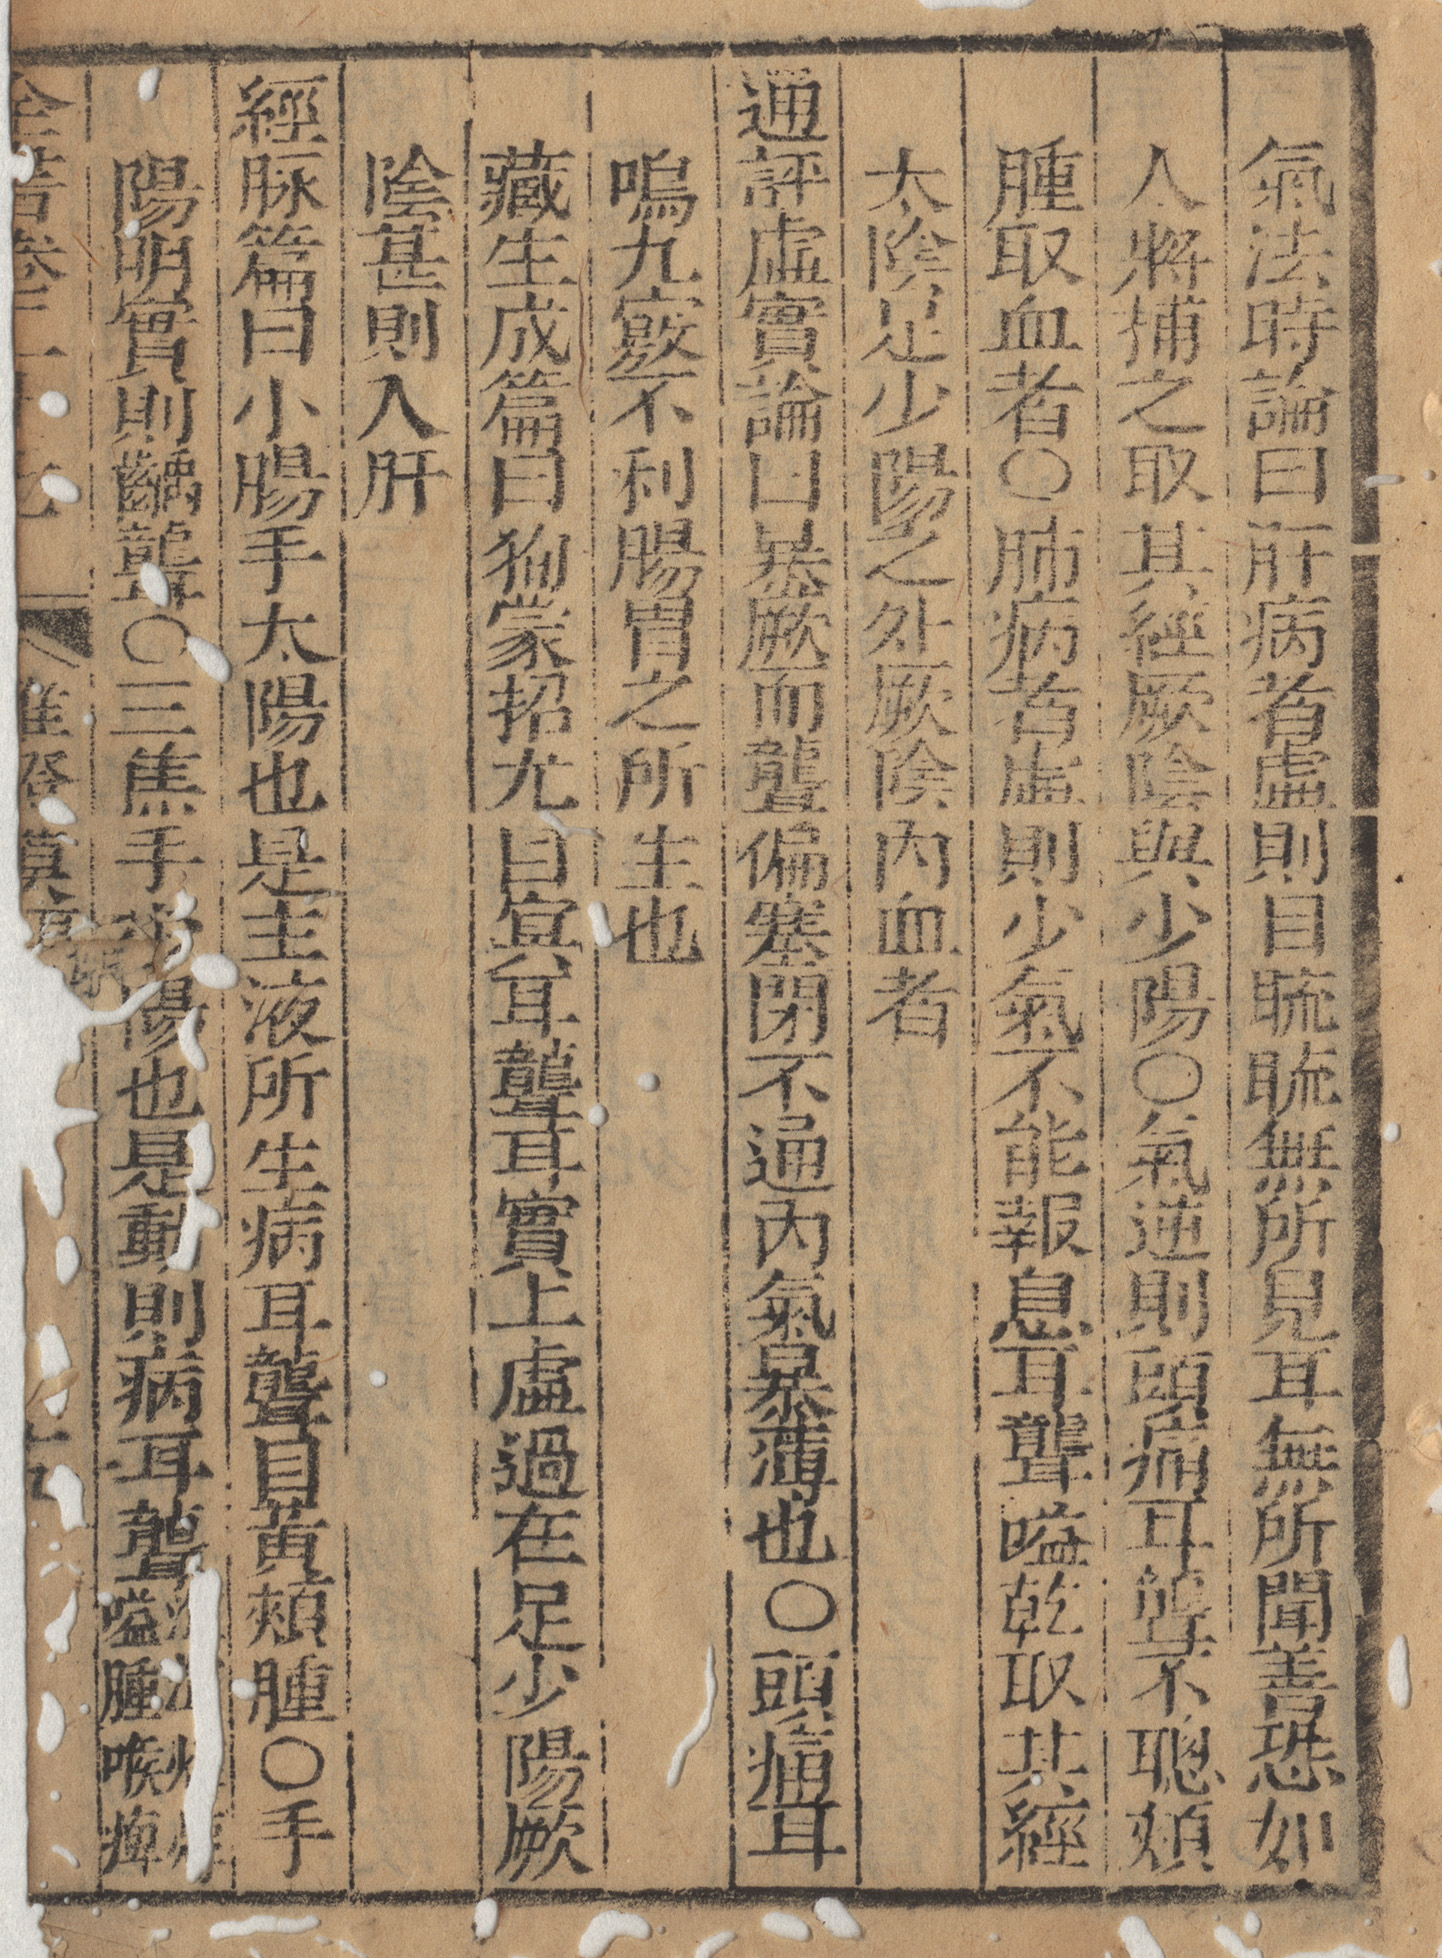 氣法時論曰肝病者虛則目䀮䀮無所見耳無所聞善恐如
人將捕之取其經厥陰與少陽〇氣逆則頭痛耳聾不聰頰
腫取血者〇肺病者虛則少氣不能報息耳聾嗌乾取其經
太陰足少陽之外厥陰內血者
通評虛實論曰暴厥而聾偏塞閉不通內氣暴薄也〇頭痛耳
鳴九竅不利腸胃之所生也
藏生成篇曰狥蒙招尤目寘耳聾耳實上虛過在足少陽厥
陰甚則入肝
經脉篇曰小腸手太陽也是主液所生病耳聾目黃頰腫〇手
陽明實則齲聾〇三焦手陽也是動則病耳聾
嗌腫喉痺
全書卷二